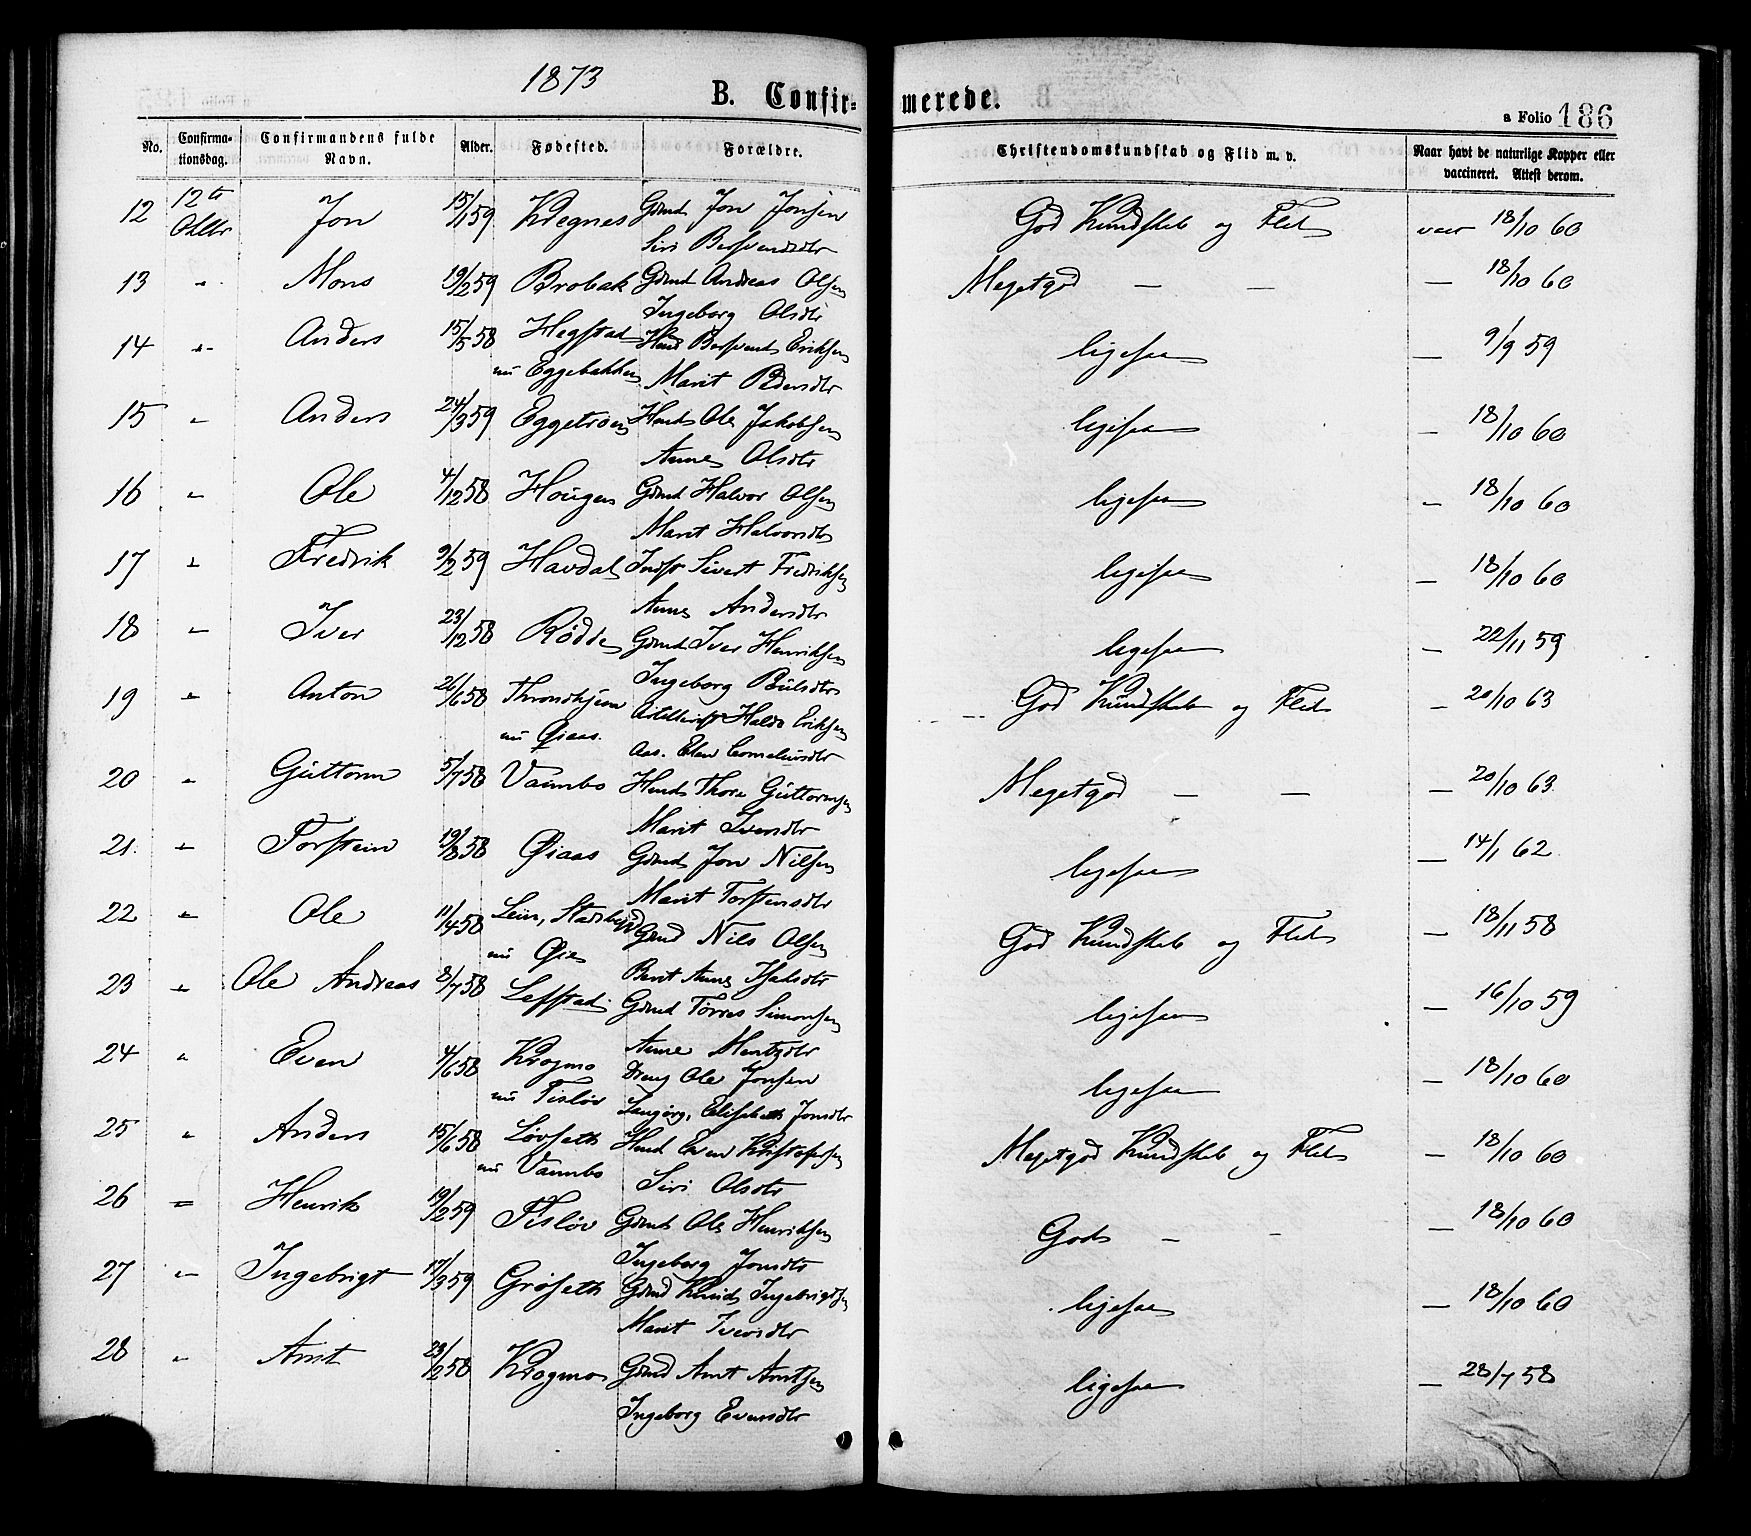 1873
B. Confir- merede.
a Folio 186
No. Confirma-tionsdag. Confirmandens fulde Navn. Alder. Fødested. Forældre. Christendomskundskab og Flid m. v. Naar havt de naturlige Kopper eller vaccineret. Attest derom.
12 12te Jon 15/1 59 Kregnes Gmd Jon Jonsen God Kundskab og Flid vac 18/10 60
Octbr Siri Bersvendsdtr
13 " Mons 19/2 59 Brobak Gmd Andreas Olsen Megetgod — — — 18/10 60
Ingeborg Olsdtr
14 " Anders 15/5 58 Hegstad Hmd Bersvend Eriksen ligesaa — 9/9 59
nu Eggebakken Marit Pedersdtr
15 " Anders 24/3 59 Eggetrøen Hmd Ole Jakobsen ligesaa — 18/10 60
Anne Olsdtr
16 " Ole 4/12 58 Hougen Gmd Halvor Olsen ligesaa — 18/10 60
Marit Halvorsdtr
17 " Fredrik 9/2 59 Havdal Indst Sivert Fredriksen ligesaa — 18/10 60
Anne Andersdtr
18 " Iver 23/12 58 Rødde Gmd Iver Henriksen ligesaa — 22/11 59
Ingeborg Pulsdtr
19 " Anton 26/6 58 Throndhjem Haldo Eriksen God Kundskab og Flid — 20/10 63
nu Øiaas. Aas. Elen Corneliusdtr
20 " Guttorm 5/7 58 Vammbo Hmd Thore Guttormsen Megetgod — — — 20/10 63
Marit Iversdtr
21. " Torstein 19/8 58 Øiaas Gmd Jon Nilsen ligesaa — 14/1 62
Marit Torstensdtr
22 " Ole 11/4 58 Lein, Stadsbygd Gmd Nils Olsen God Kundskab og Flid — 18/11 58
nu Øie Berit Anne Isaksdtr
23 " Ole Andreas 8/7 58 Lefstad Gmd Tørres Simonsen ligesaa — 16/10 59
Anne Mentzdtr
24 " Even 4/6 58 Krogmo Dreng Ole Jonsen ligesaa — 18/10 60
nu Tisløv Elisabeth Jonsdtr
25 " Anders 15/6 58 Løvseth Hmd Even Kristofersen Megetgod Kundskab og Flid — 18/10 60
nu Vammbo Siri Olsdtr
26 " Henrik 19/2 59 Tisløv Gmd Ole Henriksen God — — — 18/10 60
Ingeborg Jonsdtr
27 " Ingebrigt 17/3 59 Grøseth Gmd Knud Ingebrigtsen ligesaa — 18/10 60
Marit Iversdtr
28 " Arnt 23/2 58 Krogmo Gmd Arnt Arntsen ligesaa — 28/7 58
Ingeborg Evensdtr